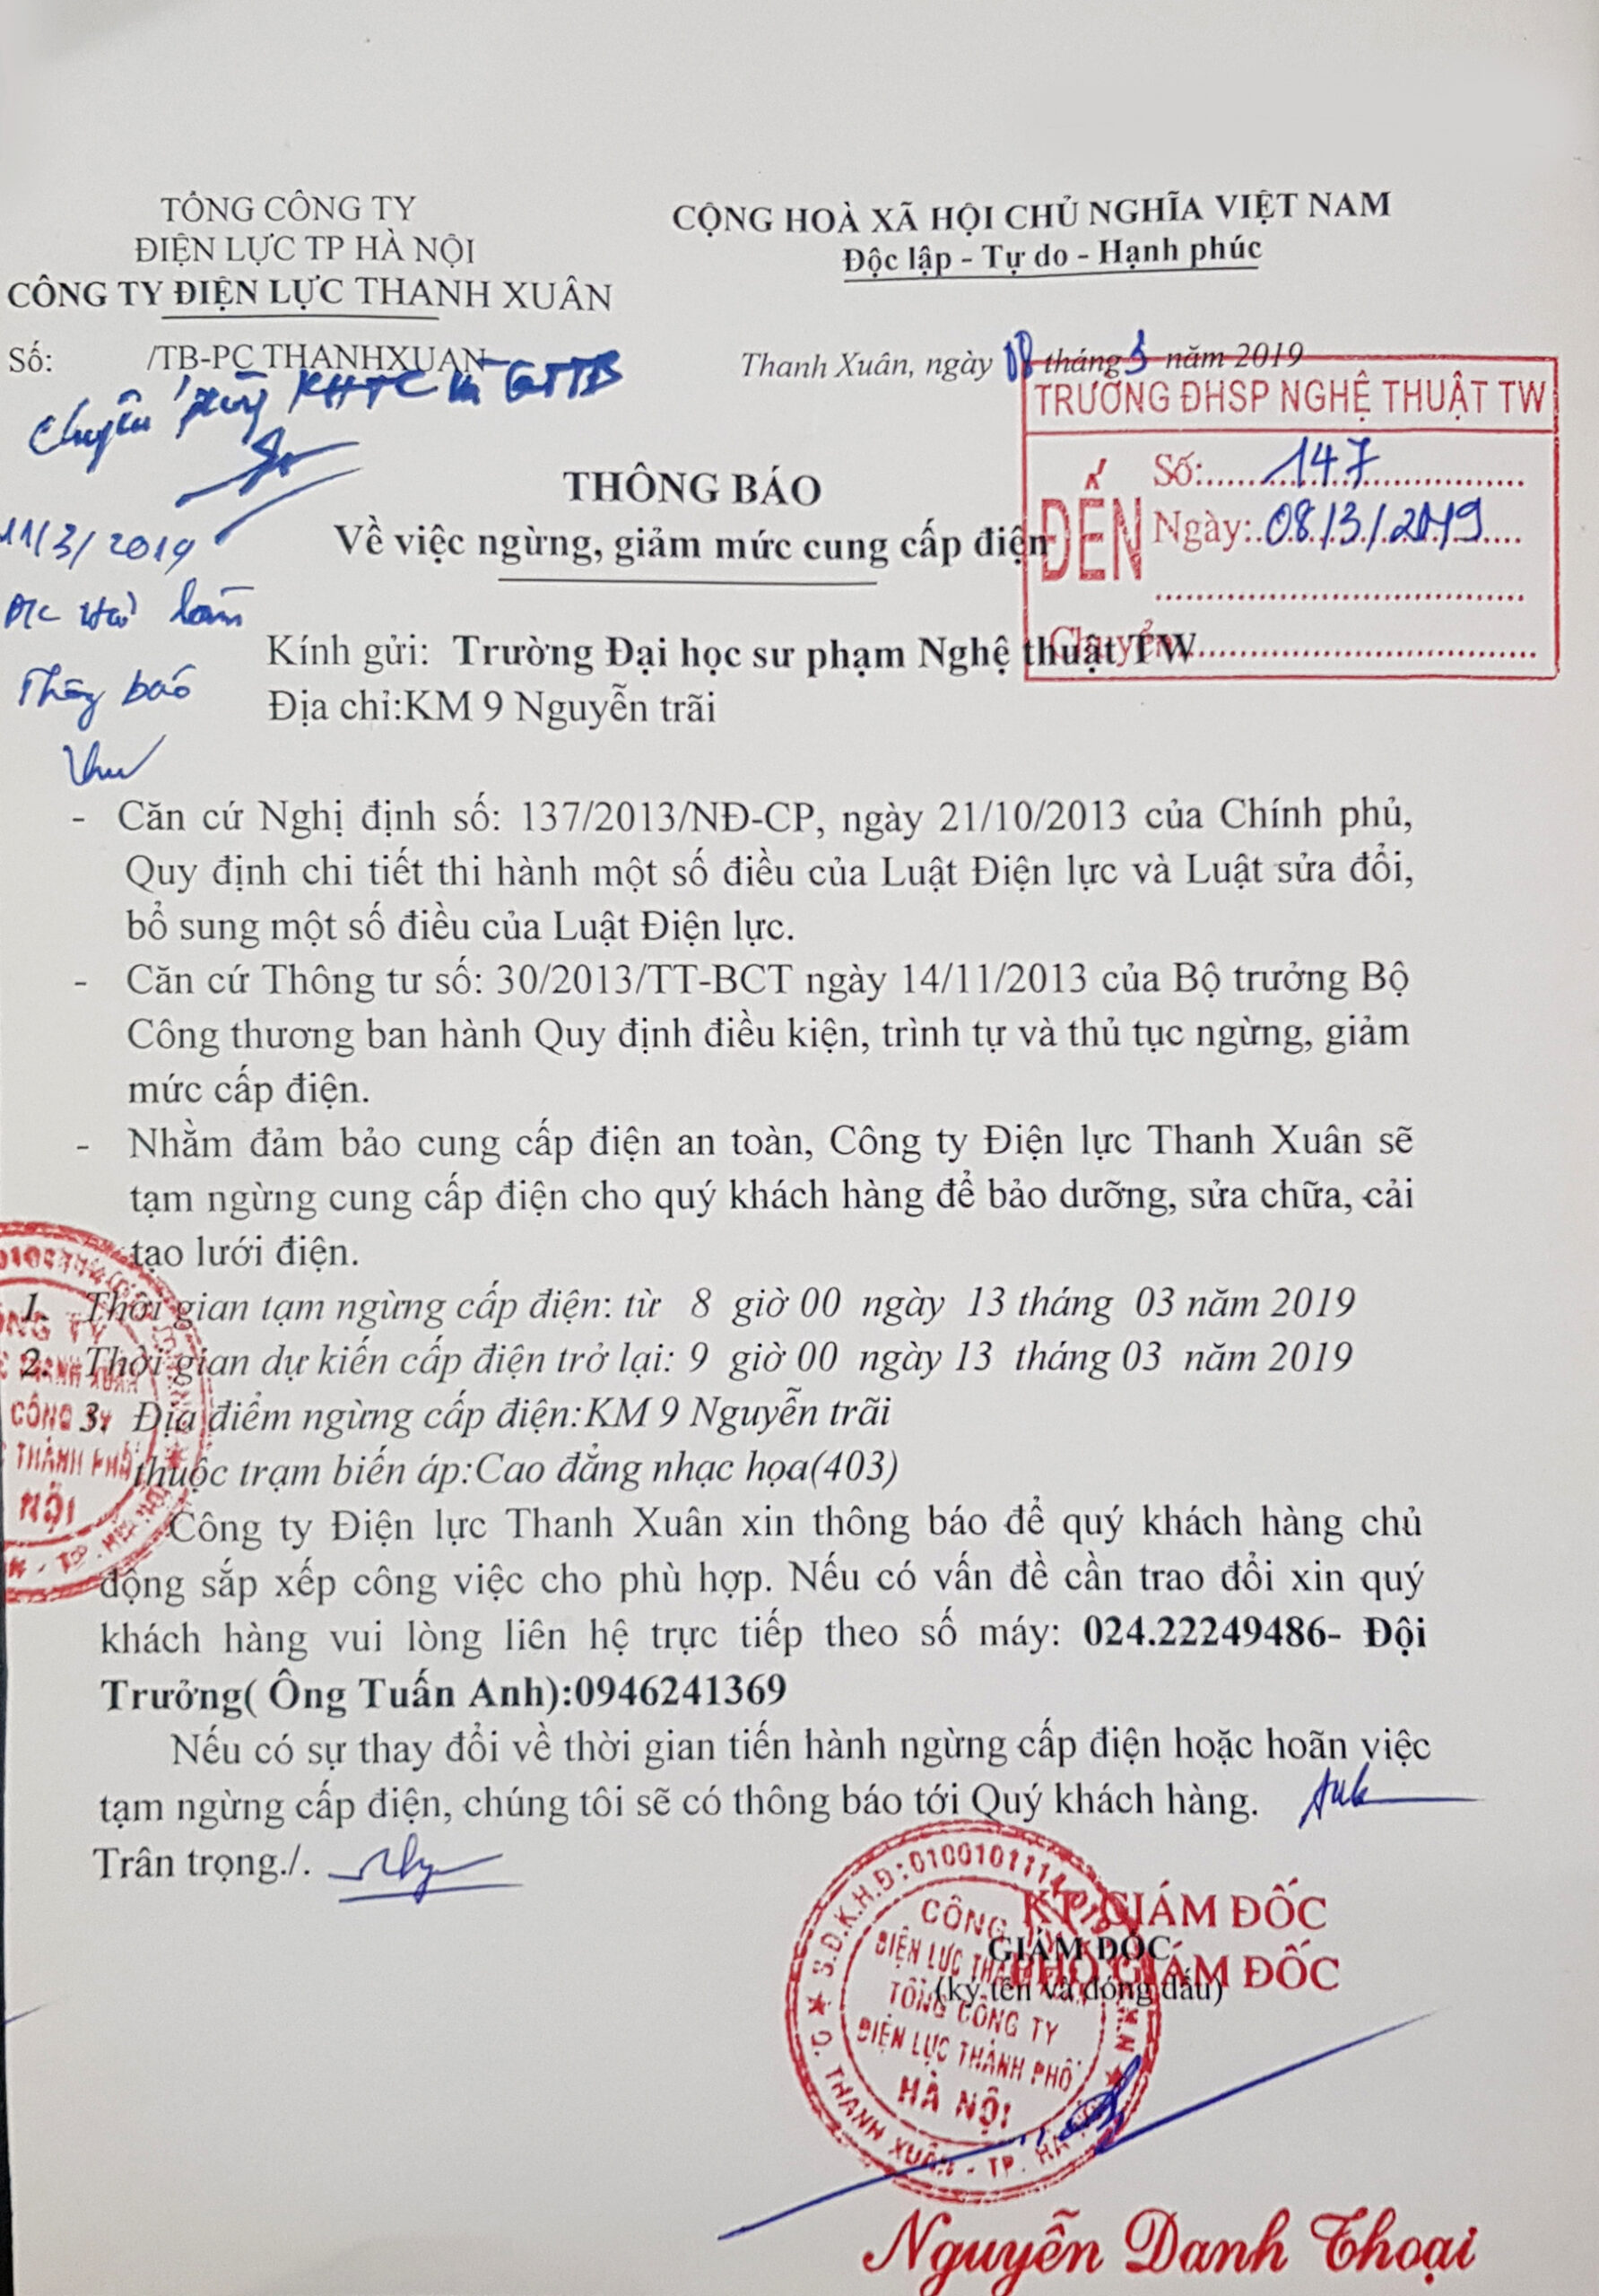 TỔNG CÔNG TY
ĐIỆN LỰC TP HÀ NỘI
CÔNG TY ĐIỆN LỰC THANH XUÂN
CỘNG HOÀ XÃ HỘI CHỦ NGHĨA VIỆT NAM
Độc lập - Tự do - Hạnh phúc
Số: /TB-PC THANHXUAN
Thanh Xuân, ngày 08 tháng 3 năm 2019
Chuyển phòng KHTC và QTTB
11/3/2019
làm
Thông báo
TRƯỜNG ĐHSP NGHỆ THUẬT TW
ĐẾN
Số: 147
Ngày: 08/3/2019
Chuyển:
THÔNG BÁO
Về việc ngừng, giảm mức cung cấp điện
Kính gửi: Trường Đại học sư phạm Nghệ thuật TW
Địa chỉ:KM 9 Nguyễn trãi
- Căn cứ Nghị định số: 137/2013/NĐ-CP, ngày 21/10/2013 của Chính phủ,
Quy định chi tiết thi hành một số điều của Luật Điện lực và Luật sửa đổi,
bổ sung một số điều của Luật Điện lực.
- Căn cứ Thông tư số: 30/2013/TT-BCT ngày 14/11/2013 của Bộ trưởng Bộ
Công thương ban hành Quy định điều kiện, trình tự và thủ tục ngừng, giảm
mức cấp điện.
- Nhằm đảm bảo cung cấp điện an toàn, Công ty Điện lực Thanh Xuân sẽ
tạm ngừng cung cấp điện cho quý khách hàng để bảo dưỡng, sửa chữa, cải
tạo lưới điện.
1. Thời gian tạm ngừng cấp điện: từ 8 giờ 00 ngày 13 tháng 03 năm 2019
2. Thời gian dự kiến cấp điện trở lại: 9 giờ 00 ngày 13 tháng 03 năm 2019
3. Địa điểm ngừng cấp điện:KM 9 Nguyễn trãi
thuộc trạm biến áp:Cao đẳng nhạc họa(403)
Công ty Điện lực Thanh Xuân xin thông báo để quý khách hàng chủ
động sắp xếp công việc cho phù hợp. Nếu có vấn đề cần trao đổi xin quý
khách hàng vui lòng liên hệ trực tiếp theo số máy: 024.22249486- Đội
Trưởng( Ông Tuấn Anh):0946241369
Nếu có sự thay đổi về thời gian tiến hành ngừng cấp điện hoặc hoãn việc
tạm ngừng cấp điện, chúng tôi sẽ có thông báo tới Quý khách hàng.
Trân trọng./.
KT. GIÁM ĐỐC
GIÁM ĐỐC
PHÓ GIÁM ĐỐC
(ký tên và đóng dấu)
CÔNG TY
ĐIỆN LỰC THANH XUÂN
TỔNG CÔNG TY
ĐIỆN LỰC THÀNH PHỐ
HÀ NỘI
Q. THANH XUÂN - TP. HÀ NỘI
Nguyễn Danh Thoại